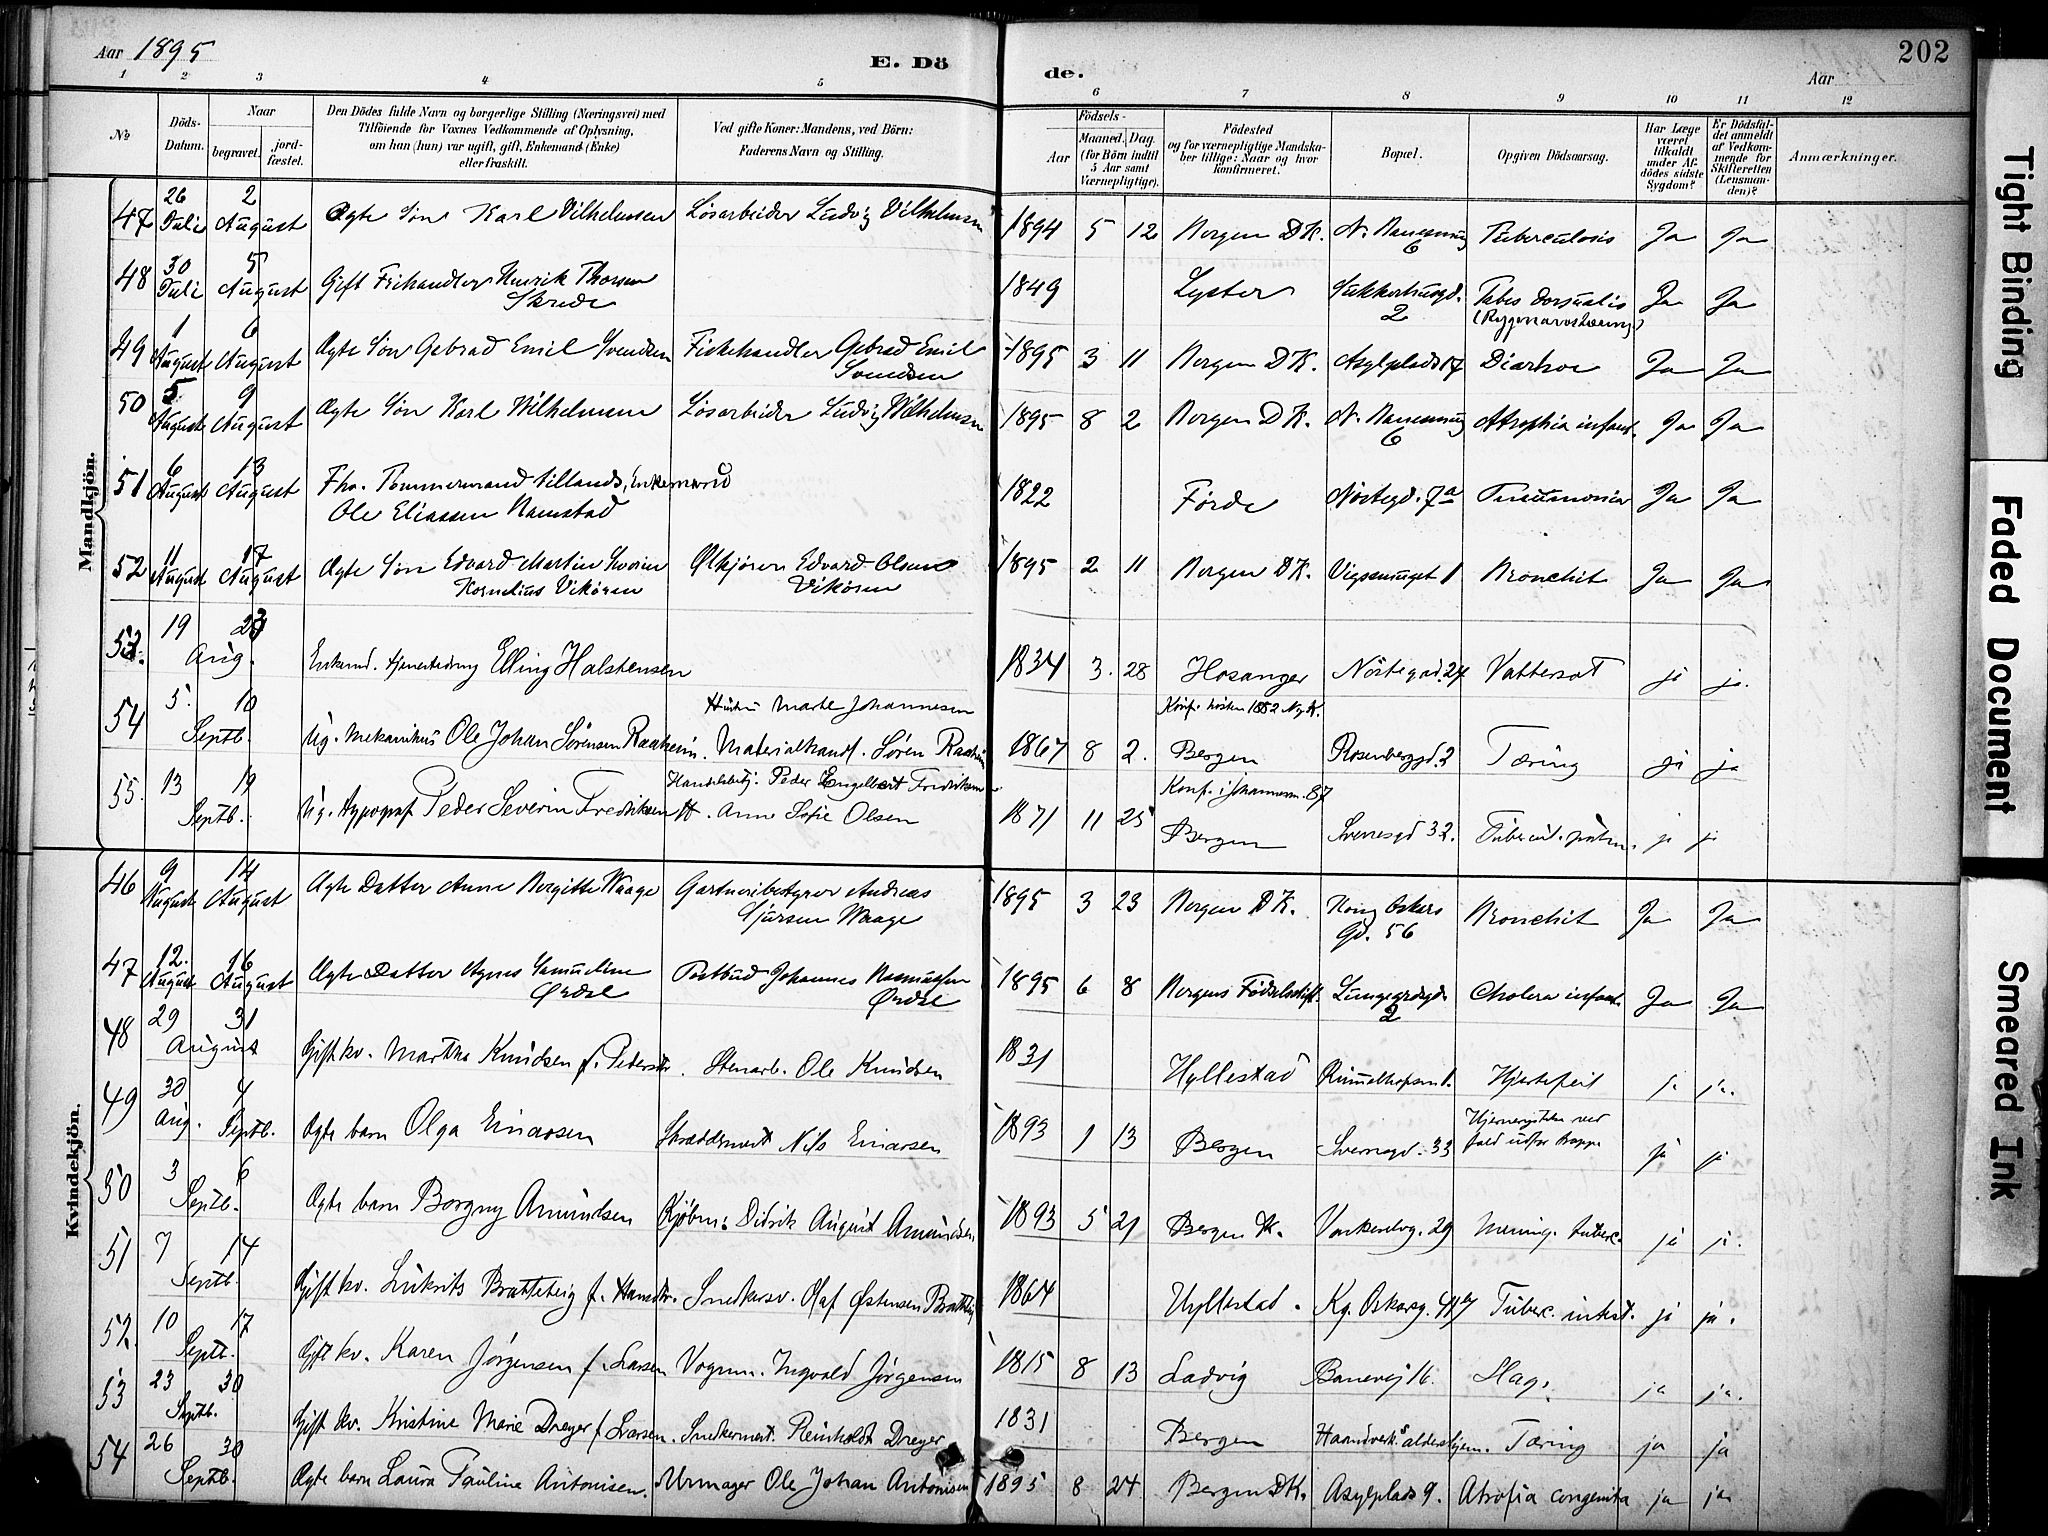 Aar 1895
E. Dö
de.
Aar
202
1 2 3 4 5 6 7 8 9 10 11 12
No
Döds-Datum.
Naar
begravet.
jord-fæstet.
Den Dödes fulde Navn og borgerlige Stilling (Næringsvei) med
Tilföiende for Voxnes Vedkommende af Oplysning,
om han (hun) var ugift, gift, Enkemand (Enke)
eller fraskilt.
Ved gifte Koner: Mandens, ved Börn:
Faderens Navn og Stilling.
Födsels-
Aar
Maaned. Dag.
(for Börn indtil
5 Aar samt
Værnepligtige).
Födested
og for værnepligtige Mandska-
ber tillige: Naar og hvor
konfirmeret.
Bopæl.
Opgiven Dödsaarsag.
Har Læge
været
tilkaldt
under Af-
dödes sidste
Sygdom?
Er Dödsfal-
det anmeldt
af Vedkom-
mende for
Skifteretten
(Lensman-
den)?
Anmærkninger.
Mandkjön.
47 26 Juli 2 August Ægte Søn Karl Vilhelmsen Løsarbeider Ludvig Vilhelmsen 1894 5 12 Bergen DK. 6 Tuberculosis Ja Ja
48 30 Juli 5 August Gift Frihandler Henrik Thorsen Skrede 1849 Lyster 2 Tabes dorsualis Ja Ja
49 1 August 6 August Ægte Søn Gebrad Emil Svendsen Fiskehandler Gebrad Emil Svendsen 1895 3 11 Bergen DK. Asylplads 17 Diarhoe Ja Ja
50 5 August 9 August Ægte Søn Karl Wilhelmsen Løsarbeider Ludvig Wilhelmsen 1895 8 2 Bergen DK. 6 Atrophia infant. Ja Ja
51 6 August 13 August Fhv. Tømmermand Enkemand
Ole Eliassen Ramstad 1822 Førde Nøstegd. 7a Ja Ja
52 11 August 17 August Ægte Søn Edvard Martin
Kornelius Vikøren Ølkjører Edvard Olsen Vikøren 1895 2 11 Bergen DK. 1 Bronchit Ja Ja
53. 19 Aug. Enkemd. Elling Halstensen 1834 3. 28 Hosanger Nöstegad. 27 Vattersot ja ja.
54 5. 10 Septb. Ug. Mekanikus Ole Johan Sörensen Raaheim. Marte Johannesen
Materialhandl. Sören Raaheim 1867 8 2. Konf. hösten 1882 Ny K.
Bergen Rosenberggd. 2 Tæring ja ja
55. 13 19 Septb. Ug. typograf Peder Severin Fredriksen Peder Engelbert Fredriksen
H. Anne Sofie Olsen 1871 11 25 Konf. i Johannesn. 87
Bergen Sverresgd 32. Tubercul. pulm. ja ja
Kvindekjön.
46 9 August 14 August Ægte Datter Anne Bergitte Waage Gartneribestyrer Andreas
Sjursen Waage 1895 3 23 Bergen DK. Kong Oskars
Gd. 56 Bronchit Ja Ja
47 12. August 16 August Ægte Datter Agnes Samueline
Ørdal Postbud Johannes Rasmussen
Ørdal 1895 6 8 Bergens Fødselsstift. Lungegårdsgd. 2 Cholera infant. Ja Ja
48 29 31 August Gift kv. Martha Knudsen f. Pedersdtr. Stenarb. Ole Knudsen 1831 Hyllestad 1. Hjertefeil ja ja.
49 30 Aug. 4 Septb. Ægte barn Olga Einarsen Skræddermest Nils Einarsen 1893 1 13 Bergen Sverresgd. 33 Hjernerystelse ved
fald udfor trappe ja ja
50 3 6 Septb. Ægte barn Borgny Amundsen Kjöbm. Didrik August Amundsen. 1893 5 21 Bergen K. 29 Mening. tuberc. ja ja.
51 7 14 Septb. Gift kv. Lukrits Bratteteig f. Hansdtr. Snedkersv. Olaf Östensen Bratteteig 1864 Hyllestad. Kg. Oskarsg. Tuberc. ja ja.
52. 10 17 Septb. Gift kv. Karen Jörgensen f. Larsen Vognm. Ingvald Jörgensen 1815 8 13 Ladvig Banevej 16. Slag. ja ja.
53 23 30 Septb. Gift kv. Kristine Marie Dreyer f. Larsen. Snedkermest. Reinholdt Dreyer 1831 Bergen Haandverk. aldershjem. Tæring ja ja
54 26 30 Septb. Ægte barn Laura Pauline Antonisen. Urmager Ole Johan Antonisen 1895 8 24 Bergen DK. Asylplads 9. Atrofia congenita ja ja
Tight Binding
Faded Document
Smeared Ink